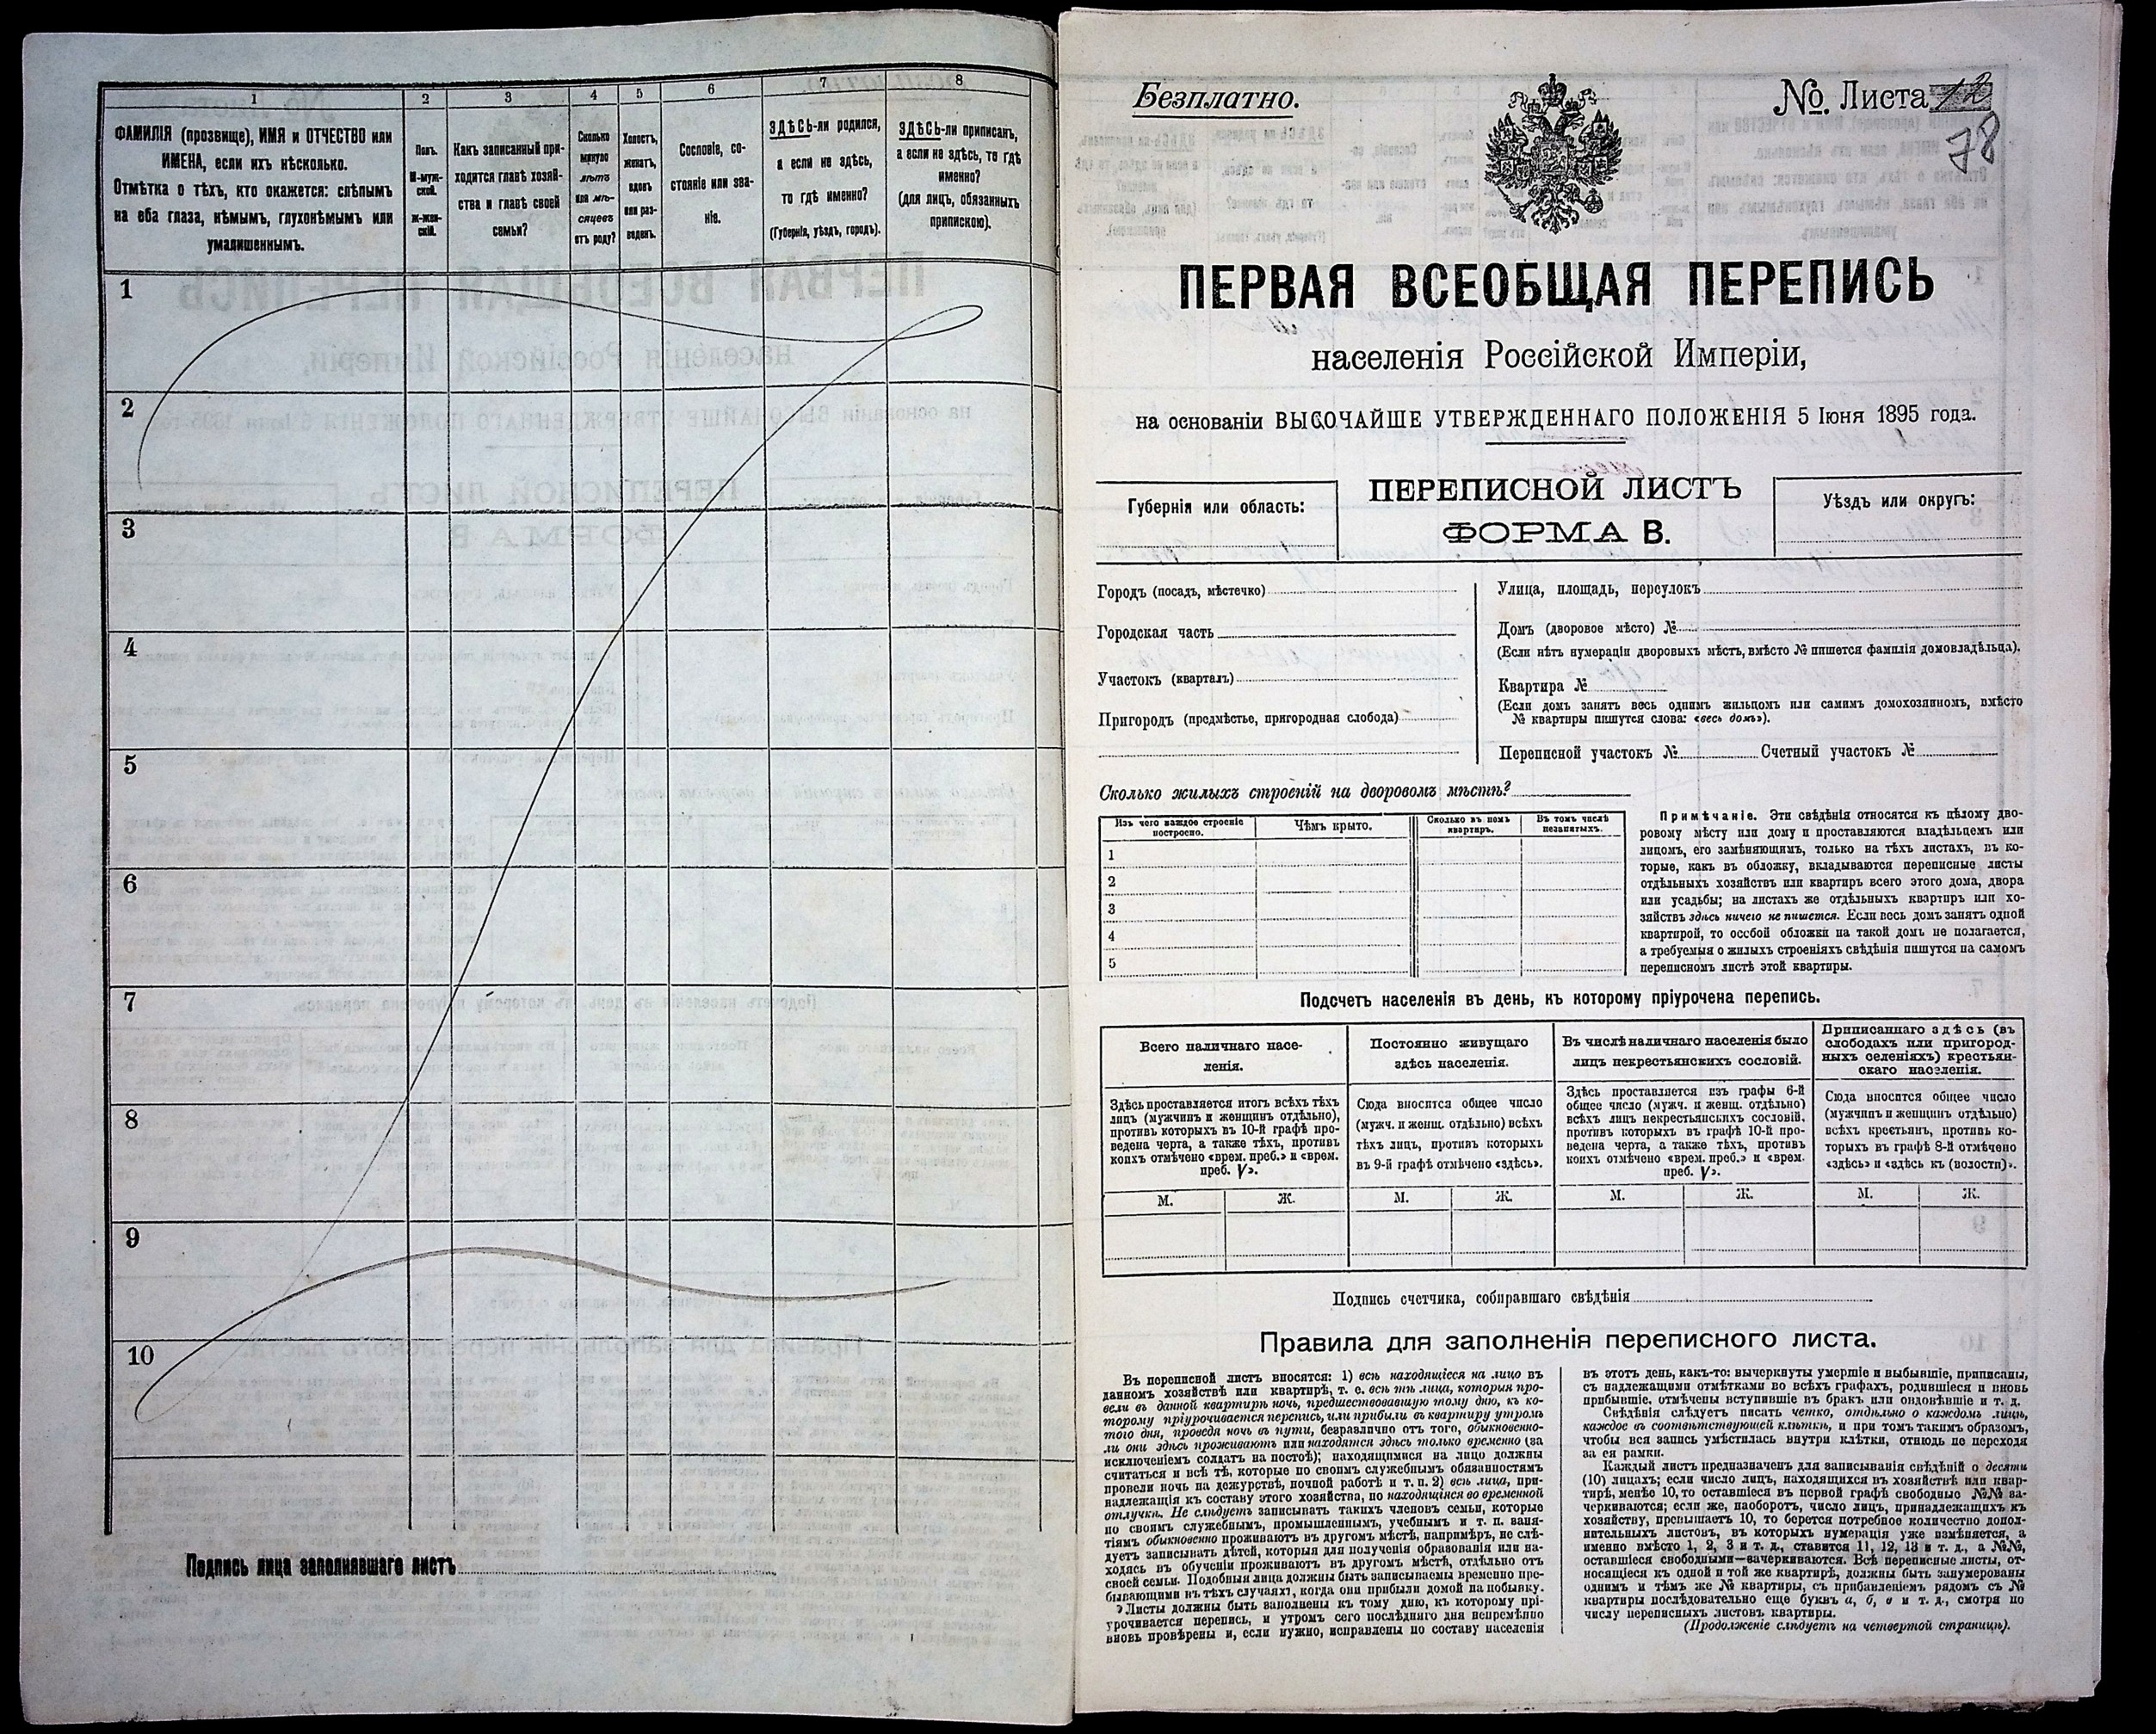 1
2
3
4
5
6
7
8
ФАМИЛІЯ (прозвище), ИМЯ и ОТЧЕСТВО или
ИМЕНА, если ихъ нѣсколько.
Отмѣтка о тѣхъ, кто окажется: слѣпымъ
на оба глаза, нѣмымъ, глухонѣмымъ или
умалишеннымъ.
Полъ.
М-муж-
ской.
Ж-жен-
скій.
Какъ записанный при-
ходится главѣ хозяй-
ства и главѣ своей
семьи?
Сколько
минуло
лѣтъ
или мѣ-
сяцевъ
отъ роду?
Холостъ,
женатъ,
вдовъ
или раз-
веденъ.
Сословіе, со-
стояніе или зва-
ніе.
ЗДѢСЬ-ли родился,
а если не здѣсь,
то гдѣ именно?
(Губернія, уѣздъ, городъ).
ЗДѢСЬ-ли приписанъ,
а если не здѣсь, то гдѣ
именно?
(для лицъ, обязанныхъ
припискою).
1
2
3
4
5
6
7
8
9
10
Подпись лица заполнявшаго листъ
Безплатно.
№. Листа 12
78
ПЕРВАЯ ВСЕОБЩАЯ ПЕРЕПИСЬ
населенія Россійской Имперіи,
на основаніи ВЫСОЧАЙШЕ УТВЕРЖДЕННАГО ПОЛОЖЕНІЯ 5 Іюня 1895 года.
Губернія или область:
ПЕРЕПИСНОЙ ЛИСТЪ
ФОРМА В.
Уѣздъ или округъ:
Городъ (посадъ, мѣстечко)
Городская часть
Участокъ (кварталъ)
Пригородъ (предмѣстье, пригородная слобода)
Улица, площадь, переулокъ
Домъ (дворовое мѣсто) №
(Если нѣтъ нумераціи дворовыхъ мѣстъ, вмѣсто № пишется фамилія домовладѣльца).
Квартира №
(Если домъ занятъ весь однимъ жильцомъ или самимъ домохозяиномъ, вмѣсто
№ квартиры пишутся слова: «весь домъ»).
Переписной участокъ № Счетный участокъ №
Сколько жилыхъ строеній на дворовомъ мѣстѣ?
Изъ чего каждое строеніе
построено.
Чѣмъ крыто.
Сколько въ немъ
квартиръ.
Въ томъ числѣ
незанятыхъ.
1
2
3
4
5
Примѣчаніе. Эти свѣдѣнія относятся къ цѣлому дво-
ровому мѣсту или дому и проставляются владѣльцемъ или
лицомъ, его замѣняющимъ, только на тѣхъ листахъ, въ ко-
торые, какъ въ обложку, вкладываются переписные листы
отдѣльныхъ хозяйствъ или квартиръ всего этого дома, двора
или усадьбы; на листахъ же отдѣльныхъ квартиръ или хо-
зяйствъ здѣсь ничего не пишется. Если весь домъ занятъ одной
квартирой, то особой обложки на такой домъ не полагается,
а требуемыя о жилыхъ строеніяхъ свѣдѣнія пишутся на самомъ
переписномъ листѣ этой квартиры.
Подсчетъ населенія въ день, къ которому пріурочена перепись.
Всего наличнаго насе-
ленія.
Здѣсь проставляется итогъ всѣхъ тѣхъ
лицъ (мужчинъ и женщинъ отдѣльно),
противъ которыхъ въ 10-й графѣ про-
ведена черта, а также тѣхъ, противъ
коихъ отмѣчено «врем. преб.» и «врем.
преб. V».
Постоянно живущаго
здѣсь населенія.
Сюда вносится общее число
(мужч. и женщ. отдѣльно) всѣхъ
тѣхъ лицъ, противъ которыхъ
въ 9-й графѣ отмѣчено «здѣсь».
Въ числѣ наличнаго населенія было
лицъ некрестьянскихъ сословій.
Здѣсь проставляется изъ графы 6-й
общее число (мужч. и женщ. отдѣльно)
всѣхъ лицъ некрестьянскихъ сословій,
противъ которыхъ въ графѣ 10-й про-
ведена черта, а также тѣхъ, противъ
коихъ отмѣчено «врем. преб.» и «врем.
преб. V».
Приписаннаго здѣсь (въ
слободахъ или пригород-
ныхъ селеніяхъ) крестьян-
скаго населенія.
Сюда вносится общее число
(мужчинъ и женщинъ отдѣльно)
всѣхъ крестьянъ, противъ ко-
торыхъ въ графѣ 8-й отмѣчено
«здѣсь» и «здѣсь къ (волости)».
М. Ж. М. Ж. М. Ж. М. Ж.
Подпись счетчика, собиравшаго свѣдѣнія
Правила для заполненія переписного листа.
Въ переписной листъ вносятся: 1) всѣ находящіеся на лицо въ
данномъ хозяйствѣ или квартирѣ, т. е. всѣ тѣ лица, которыя про-
вели въ данной квартирѣ ночь, предшествовавшую тому дню, къ ко-
торому пріурочивается перепись, или прибыли въ квартиру утромъ
того дня, проведя ночь въ пути, безразлично отъ того, обыкновенно-
ли они здѣсь проживаютъ или находятся здѣсь только временно (за
исключеніемъ солдатъ на постоѣ); находящимися на лицо должны
считаться и всѣ тѣ, которые по своимъ служебнымъ обязанностямъ
провели ночь на дежурствѣ, ночной работѣ и т. п. 2) всѣ лица, при-
надлежащія къ составу этого хозяйства, но находящіяся во временной
отлучкѣ. Не слѣдуетъ записывать такихъ членовъ семьи, которые
по своимъ служебнымъ, промышленнымъ, учебнымъ и т. п. заня-
тіямъ обыкновенно проживаютъ въ другомъ мѣстѣ, напримѣръ, не слѣ-
дуетъ записывать дѣтей, которыя для полученія образованія или на-
ходясь въ обученіи проживаютъ въ другомъ мѣстѣ, отдѣльно отъ
своей семьи. Подобныя лица должны быть записываемы временно пре-
бывающими въ тѣхъ случаяхъ, когда они прибыли домой на побывку.
Листы должны быть заполнены къ тому дню, къ которому прі-
урочивается перепись, и утромъ сего послѣдняго дня непремѣнно
вновь провѣрены и, если нужно, исправлены по составу населенія
въ этотъ день, какъ-то: вычеркнуты умершіе и выбывшіе, приписаны,
съ надлежащими отмѣтками во всѣхъ графахъ, родившіеся и вновь
прибывшіе, отмѣчены вступившіе въ бракъ или овдовѣвшіе и т. д.
Свѣдѣнія слѣдуетъ писать четко, отдѣльно о каждомъ лицѣ,
каждое въ соотвѣтствующей клѣткѣ, и при томъ такимъ образомъ,
чтобы вся запись умѣстилась внутри клѣтки, отнюдь не переходя
за ея рамки.
Каждый листъ предназначенъ для записыванія свѣдѣній о десяти
(10) лицахъ; если число лицъ, находящихся въ хозяйствѣ или квар-
тирѣ, менѣе 10, то оставшіеся въ первой графѣ свободные №№ за-
черкиваются; если же, наоборотъ, число лицъ, принадлежащихъ къ
хозяйству, превышаетъ 10, то берется потребное количество допол-
нительныхъ листовъ, въ которыхъ нумерація уже измѣняется, а
именно вмѣсто 1, 2, 3 и т. д., ставится 11, 12, 13 и т. д., а №№,
оставшіеся свободными—зачеркиваются. Всѣ переписные листы, от-
носящіеся къ одной и той же квартирѣ, должны быть занумерованы
однимъ и тѣмъ же № квартиры, съ прибавленіемъ рядомъ съ №
квартиры послѣдовательно еще буквъ а, б, в и т. д., смотря по
числу переписныхъ листовъ квартиры.
(Продолженіе слѣдуетъ на четвертой страницѣ).